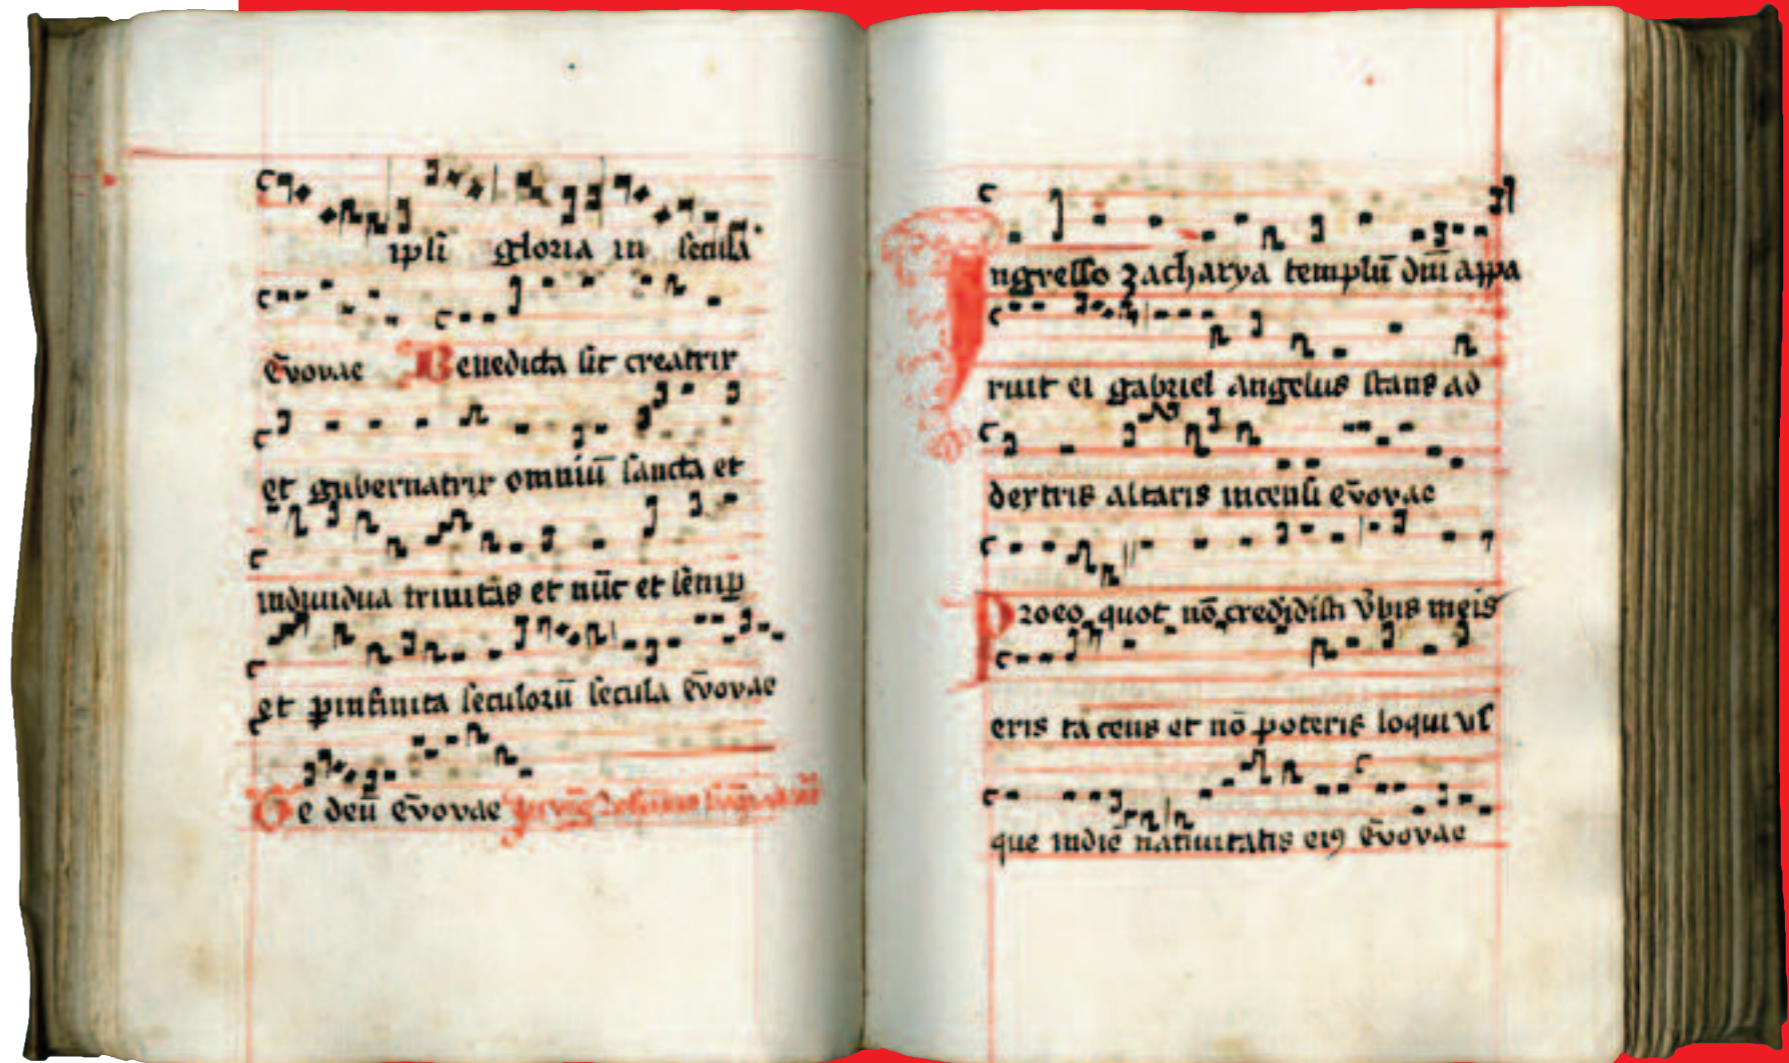 ipsi gloria in secula
ēvovae Benedicta sit creatrix
et gubernatrix omniū sancta et
indiuidua trinitas et nūc et semp
et pinfinita seculorū secula ēvovae
Te deū ēvovae
Ingresso zacharya templū dn̄i appa
ruit ei gabriel angelus stans ad
dextris altaris incensi ēvovae
Pro eo quot nō credidisti v̄bis meis
eris tacens et nō poteris loqui vs
que indiē natiuitatis ei9 ēvovae